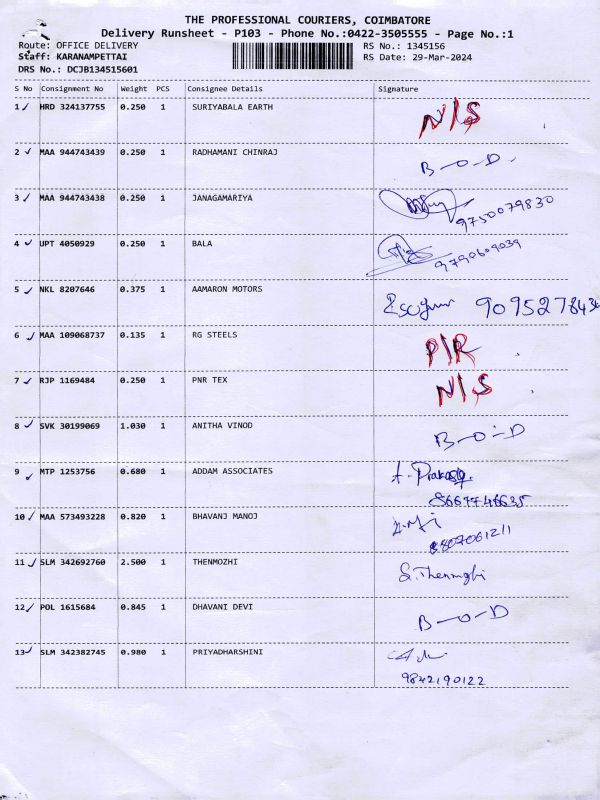 THE PROFESSIONAL COURIERS, COIMBATORE
Delivery Runsheet - P103 - Phone No.:0422-3505555 - Page No.:1
Route: OFFICE DELIVERY RS No.: 1345156
Staff: KARANAMPETTAI RS Date: 29-Mar-2024
DRS No.: DCJB134515601
S No Consignment No Weight PCS Consignee Details Signature
1 ✓ HRD 324137755 0.250 1 SURIYABALA EARTH N/S
2 ✓ MAA 944743439 0.250 1 RADHAMANI CHINRAJ B-O-D
3 ✓ MAA 944743438 0.250 1 JANAGAMARIYA
9750079830
4 ✓ UPT 4050929 0.250 1 BALA
9790609039
5 ✓ NKL 8207646 0.375 1 AAMARON MOTORS
6 ✓ MAA 109068737 0.135 1 RG STEELS P/R
7 ✓ RJP 1169484 0.250 1 PNR TEX N/S
8 ✓ SVK 30199069 1.030 1 ANITHA VINOD B-O-D
9 ✓ MTP 1253756 0.680 1 ADDAM ASSOCIATES
10 ✓ MAA 573493228 0.820 1 BHAVANJ MANOJ
8807061211
11 ✓ SLM 342692760 2.500 1 THENMOZHI
12 ✓ POL 1615684 0.845 1 DHAVANI DEVI B-O-D
13 ✓ SLM 342382745 0.980 1 PRIYADHARSHINI
9842190122